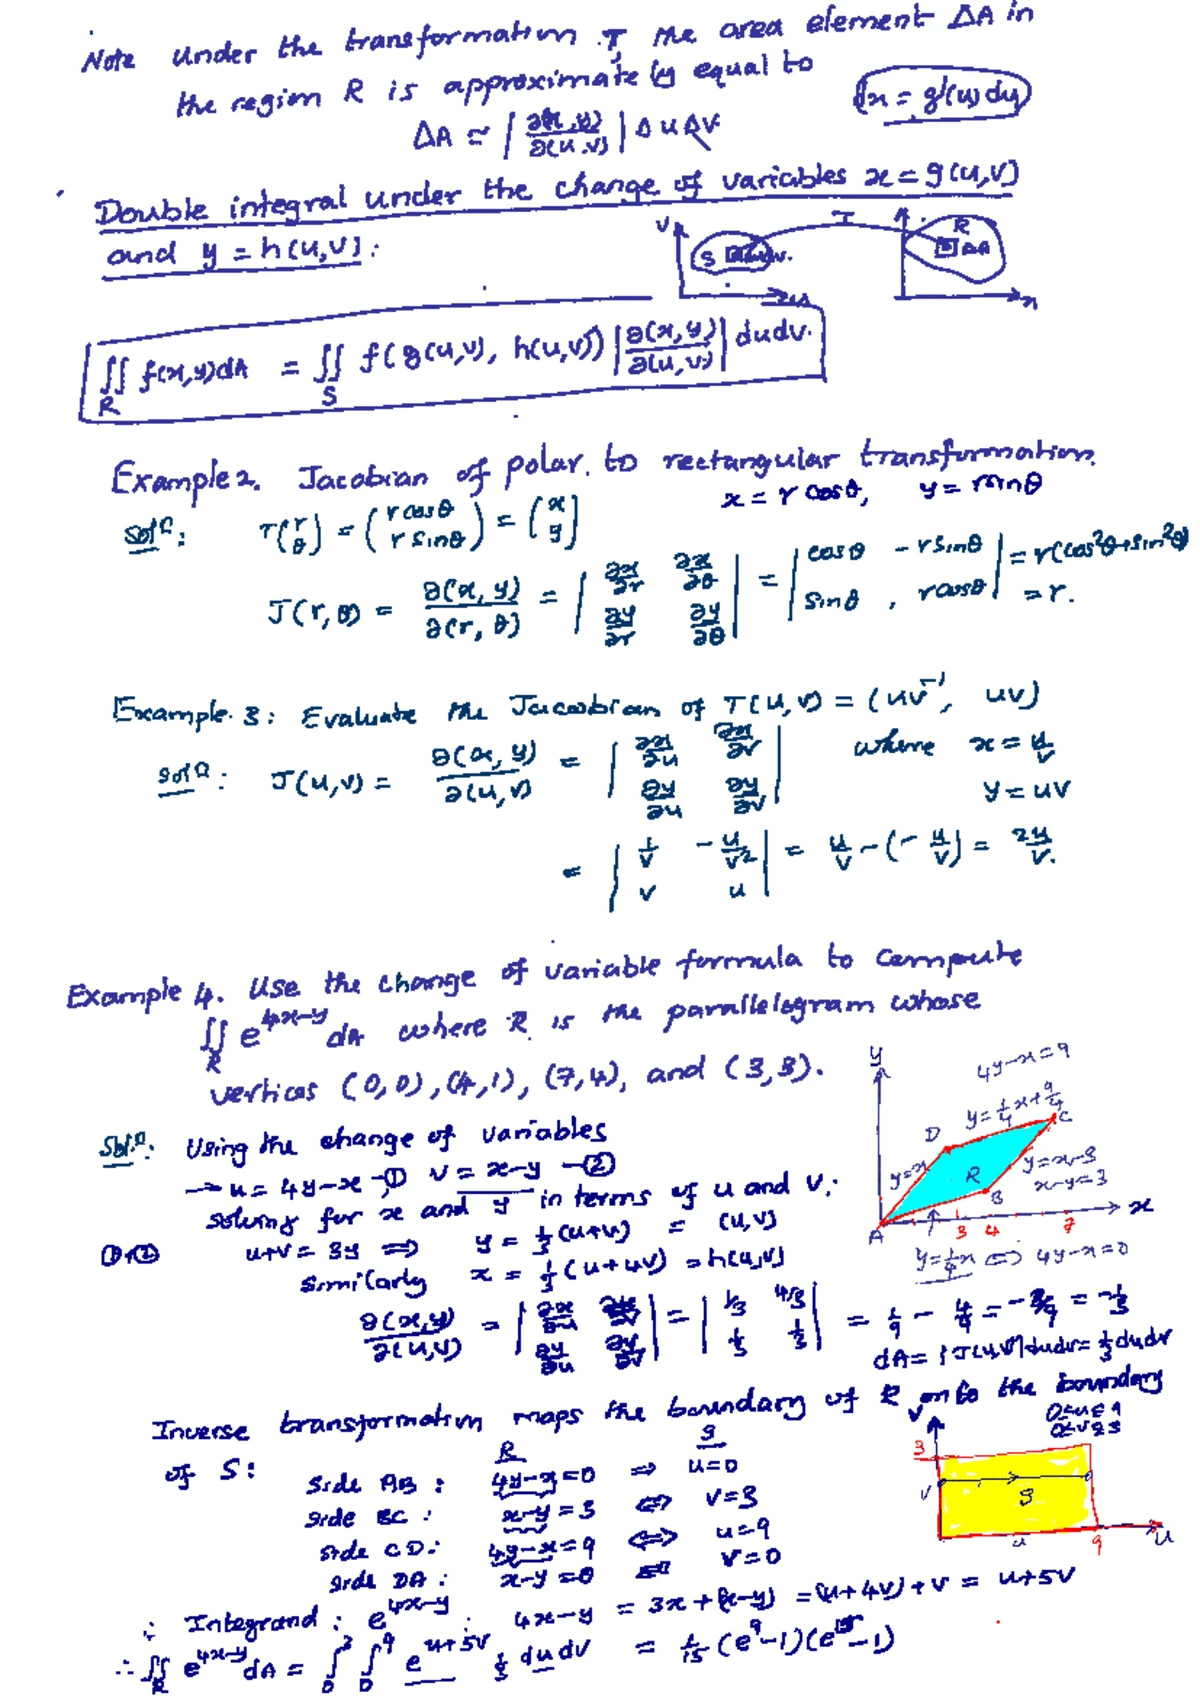 Note Under the transformation T, the area element ΔA in
the region R is approximately equal to
dx = g'(u) du
ΔA ≃ | ∂(x,y)/∂(u,v) | Δu Δv
Double integral under the change of variables x = g(u,v)
and y = h(u,v):
V T R
S ΔA
u x
∬_R f(x,y)dA = ∬_S f(g(u,v), h(u,v)) | ∂(x,y)/∂(u,v) | du dv.
Example 2. Jacobian of polar to rectangular transformation.
x = r cosθ, y = r sinθ
Solⁿ: T(r θ) = (r cosθ r sinθ) = (x y)
J(r,θ) = ∂(x,y)/∂(r,θ) = | ∂x/∂r ∂x/∂θ ; ∂y/∂r ∂y/∂θ | = | cosθ -r sinθ ; sinθ , r cosθ | = r(cos²θ+sin²θ)
= r.
Example 3: Evaluate the Jacobian of T(u,v) = (uv⁻¹, uv)
Solⁿ: J(u,v) = ∂(x,y)/∂(u,v) = | ∂x/∂u ∂x/∂v ; ∂y/∂u ∂y/∂v | where x = u/v
y = uv
= | 1/v -u/v² ; v u | = u/v - (-u/v) = 2u/v.
Example 4. Use the change of variable formula to compute
∬_R e^{4x-y} dA where R is the parallelogram whose
vertices (0,0), (4,1), (7,4), and (3,3).
y 4y-x=9
y=1/4 x+9/4
D C
y=x R y=x-3
x-y=3
B
A 3 4 7 x
y=1/4 x ⇔ 4y-x=0
Solⁿ: Using the change of variables
→ u = 4y-x -① v = x-y -②
Solving for x and y in terms of u and v:
①+② u+v = 3y ⇒ y = 1/3 (u+v) = (u,v)
Similarly x = 1/3 (u+4v) = h(u,v)
∂(x,y)/∂(u,v) = | ∂x/∂u ∂x/∂v ; ∂y/∂u ∂y/∂v | = | 1/3 4/3 ; 1/3 1/3 | = 1/9 - 4/9 = -3/9 = -1/3
dA = |J(u,v)| du dv = 1/3 du dv
Inverse transformation maps the boundary of R onto the boundary
of S: R S
0≤u≤9
0≤v≤3
Side AB: 4y-x=0 ⇒ u=0
Side BC: x-y=3 ⇔ v=3
Side CD: 4y-x=9 ⇔ u=9
Side DA: x-y=0 ⇔ v=0
v
3
v S
u 9 u
∴ Integrand: e^{4x-y}: 4x-y = 3x+(x-y) = (u+4v)+v = u+5v
∴ ∬_R e^{4x-y} dA = ∫_0^3 ∫_0^9 e^{u+5v} 1/3 du dv = 1/15 (e^9-1)(e^{15}-1)